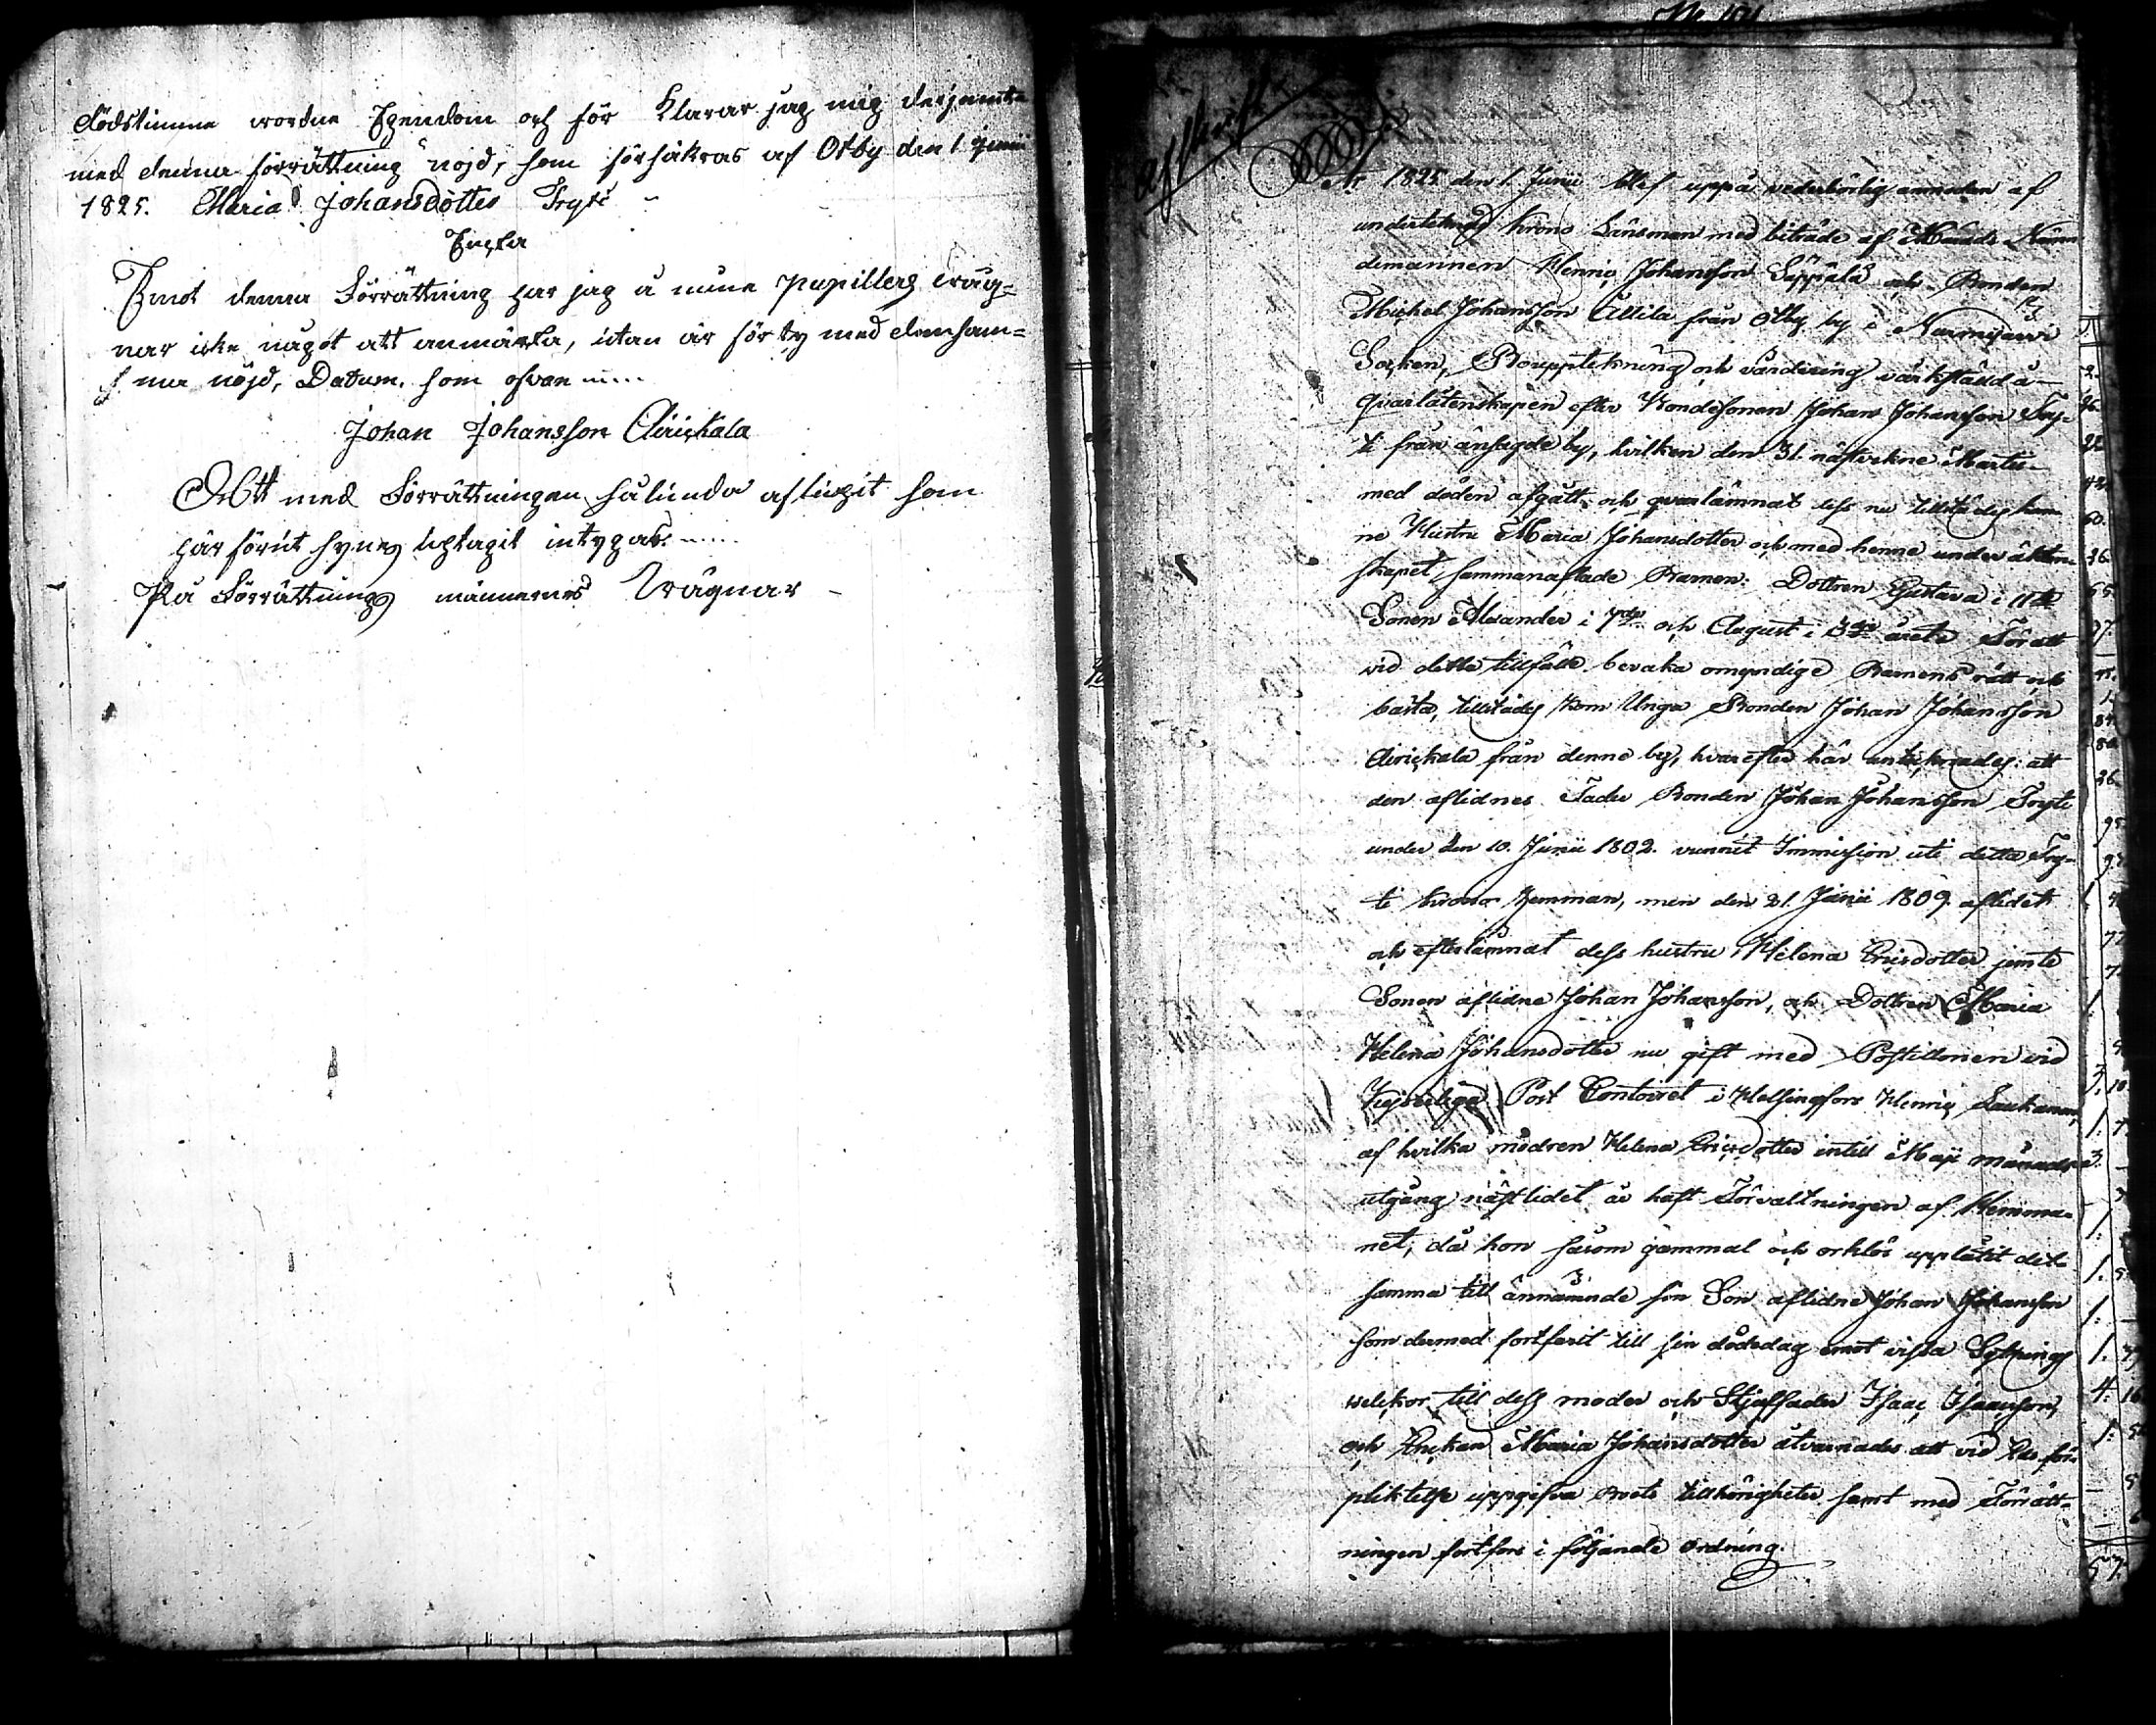 dödstimma wordne Egendom och för Klarar jag mig derjemte
med denna förrättning nöjd, som försäkras af Otby den 1 Junii
1825. Maria Johansdotter Tryti
Enka
Emot denna Förrättning har jag å mine pupillers wäg=
nar icke något att anmärka, utan är för ty med densam=
ma nöjd, Datum, som ofvan
Johan Johansson Airickala
Att med Förrättningen sålunda aflupit som
här förut synes uptagit intygas.
På Förrättnings männernes Wägnar
No 101
Afskrift
År 1825 den 1 Junii blef uppå vederbörlig anmodan af
undertecknad Krono Länsman med biträde af Härads Nämn
demannen Henric Johansson Seppälä och Bonden
Michel Johansson Uttila från Otby by i Nurmijärvi
Socken, Bouppteckning och värdering värkstäld å
Qvarlåtenskapen efter Bondesonen Johan Johansson Try-
ti från ansagde by, hvilken den 31 nästvekne Martii
med döden afgått och qvarlämnat dess nu tillstädes kom
ne Hustru Maria Johansdotter och med henne under äkten
skapet sammanaflade Barnen: Dottren Gustava i 11te
Sonen Alexander i 7de och August i 3dje årete För att
vid detta tillfälle bevaka omyndige Barnens rätt och
bästa, tillstädes kom Unga Bonden Johan Johansson
Airickala från denne by, hvarefter här antecknades: att
den aflidnes Fader Bonden Johan Johansson Tryti
under den 10. Junii 1802. vunnit Immission uti detta Try-
ti Krono hemman, men den 21. Junii 1809 aflidet
och efterlämnat dess hustru Helena Ericsdotter jemte
Sonen aflidne Johan Johansson, och Dottren Maria
Helena Johansdotter nu gift med Postillonen vid
Kejserliga Post Contoiret i Helsingfors Henric Laukanen,
af hvilka modren Helena Ericsdotter intill Maji månads
utgång nästlidet år haft Förvaltningen af Hemma-
net, då hon såsom gammal och orklös upplåtit det
samma till ännämnde sin Son aflidne Johan Johansson
som dermed fortfarit till sin dödsdag emot vissa Sytnings
welckor till dess moder och Stjuffader Isaac Isaacsson,
och Enckan Maria Johansdotter åtvarnades att vid Eds för
pliktelse uppgifva Boets tillhörigheter samt med Förrätt-
ningen fortfors i följande ordning.